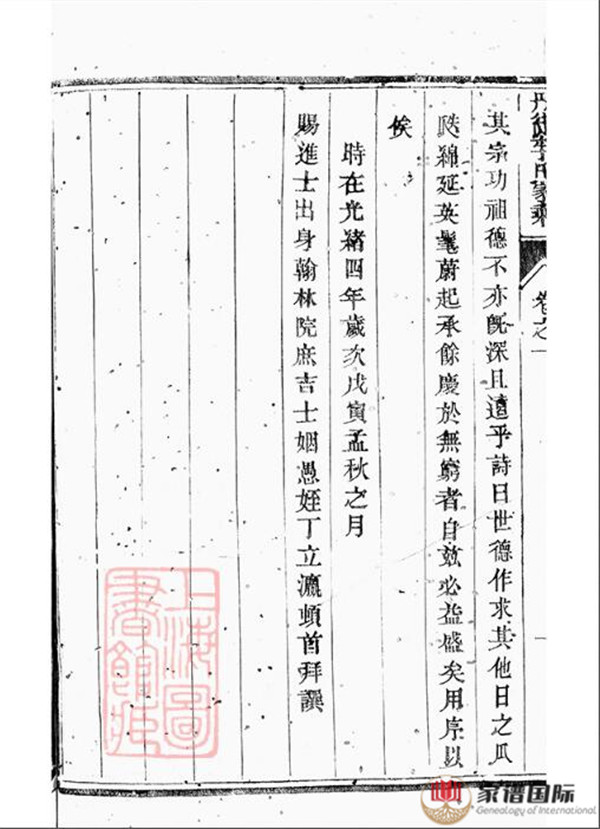 丹徒李氏家乘
卷之一
其宗功祖德不亦既深且遠乎詩曰世德作求其他日之瓜
瓞綿延英髦蔚起承餘慶於無窮者自茲必益盛矣用序以
俟
時在光緒四年歲次戊寅孟秋之月
賜進士出身翰林院庶吉士姻愚姪丁立瀛頓首拜譔
上海圖
書館所
家谱国际
Genealogy of International